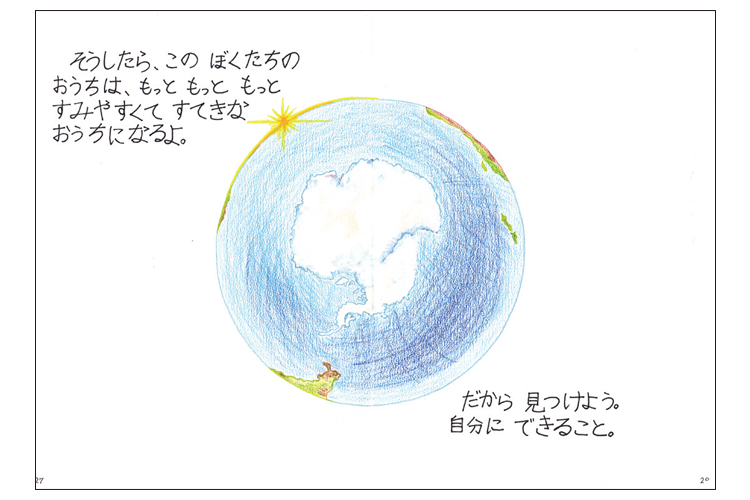 そうしたら、この ぼくたちの
おうちは、もっと もっと もっと
すみやすくて すてきな
おうちになるよ。
だから 見つけよう。
自分に できること。
27
20